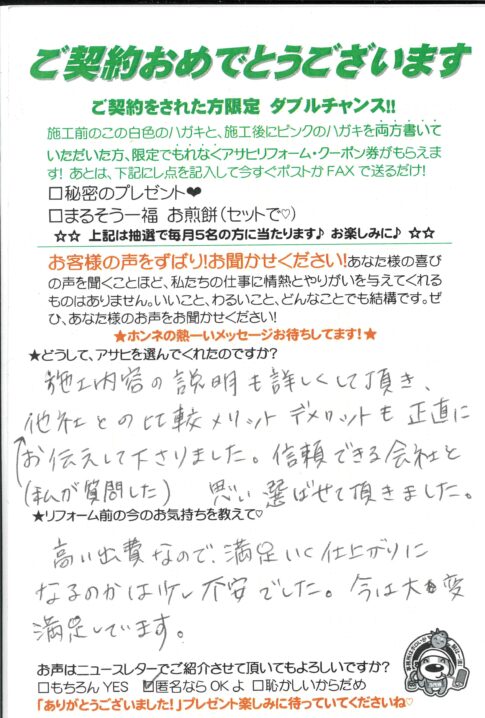 ご契約おめでとうございます
ご契約をされた方限定 ダブルチャンス!!
施工前のこの白色のハガキと、施工後にピンクのハガキを両方書いて
いただいた方、限定でもれなくアサヒリフォーム・クーポン券がもらえま
す! あとは、下記にレ点を記入して今すぐポストかFAXで送るだけ!
□秘密のプレゼント♥
□まるそう一福 お煎餅(セットで♡)
☆☆ 上記は抽選で毎月5名の方に当たります♪ お楽しみに♪ ☆☆
お客様の声をずばり!お聞かせください!あなた様の喜び
の声を聞くことほど、私たちの仕事に情熱とやりがいを与えてくれる
ものはありません。いいこと、わるいこと、どんなことでも結構です。ぜ
ひ、あなた様のお声をお聞かせください!
★ホンネの熱ーいメッセージお待ちしてます!★
★どうして、アサヒを選んでくれたのですか?
施工内容の説明も詳しくして頂き、
他社との比較メリット デメリットも正直に
お伝えして下さりました。信頼できる会社と
(私が質問した) 思い選ばせて頂きました。
★リフォーム前の今のお気持ちを教えて♡
高い出費なので、満足いく仕上がりに
なるのかは少し不安でした。今は大変
満足しています。
お声はニュースレターでご紹介させて頂いてもよろしいですか?
□もちろん YES ☑匿名なら OK よ □恥かしいからだめ
「ありがとうございました!」プレゼント楽しみに待っていてくださいね♡